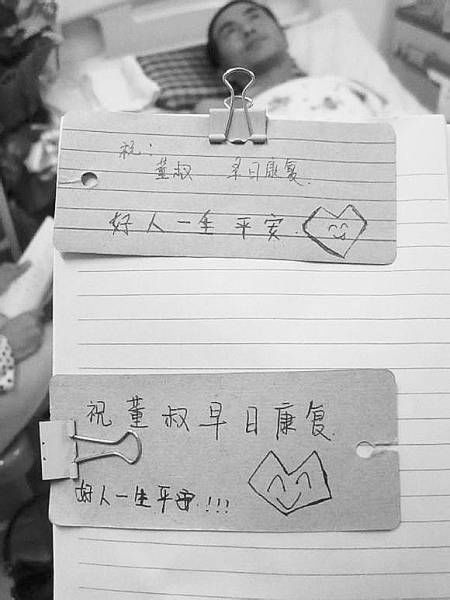 祝:
董叔 早日康复.
好人一生平安.
祝董叔早日康复.
好人一生平安.!!!